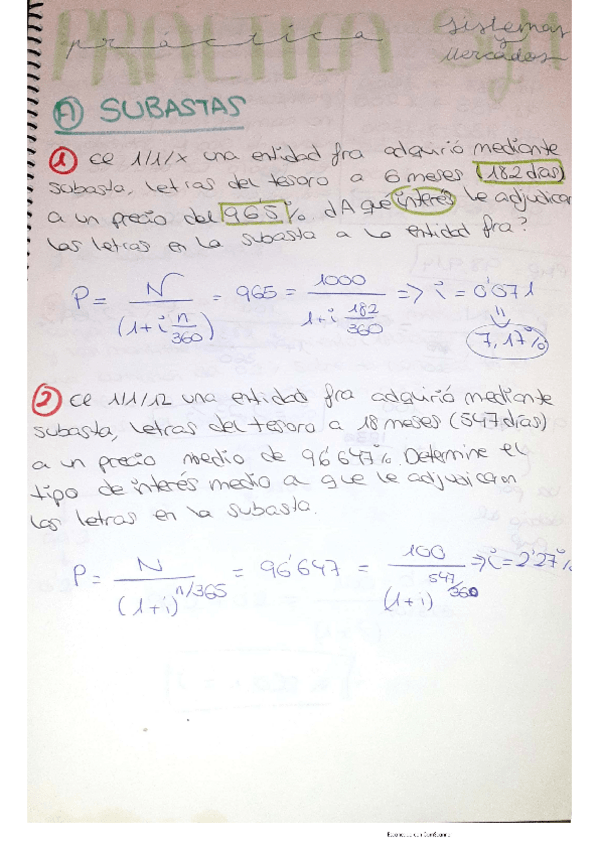 práctica
Sistemas
y
Mercados
A SUBASTAS
1 El 1/1/X una entidad fra adquirió mediante
subasta, letras del tesoro a 6 meses (182 días)
a un precio del 96'5%. ¿A qué interés le adjudican
las letras en la subasta a la entidad fra?
P = N / (1+i n/360) = 965 = 1000 / 1+i 182/360 => i = 0'071
7,17%
2 El 1/1/12 una entidad fra adquirió mediante
subasta, letras del tesoro a 18 meses (547 días)
a un precio medio de 96'647%. Determine el
tipo de interés medio al que le adjudicaron
las letras en la subasta.
P = N / (1+i)^n/365 = 96'647 = 100 / (1+i)^547/360 => i = 2'27%